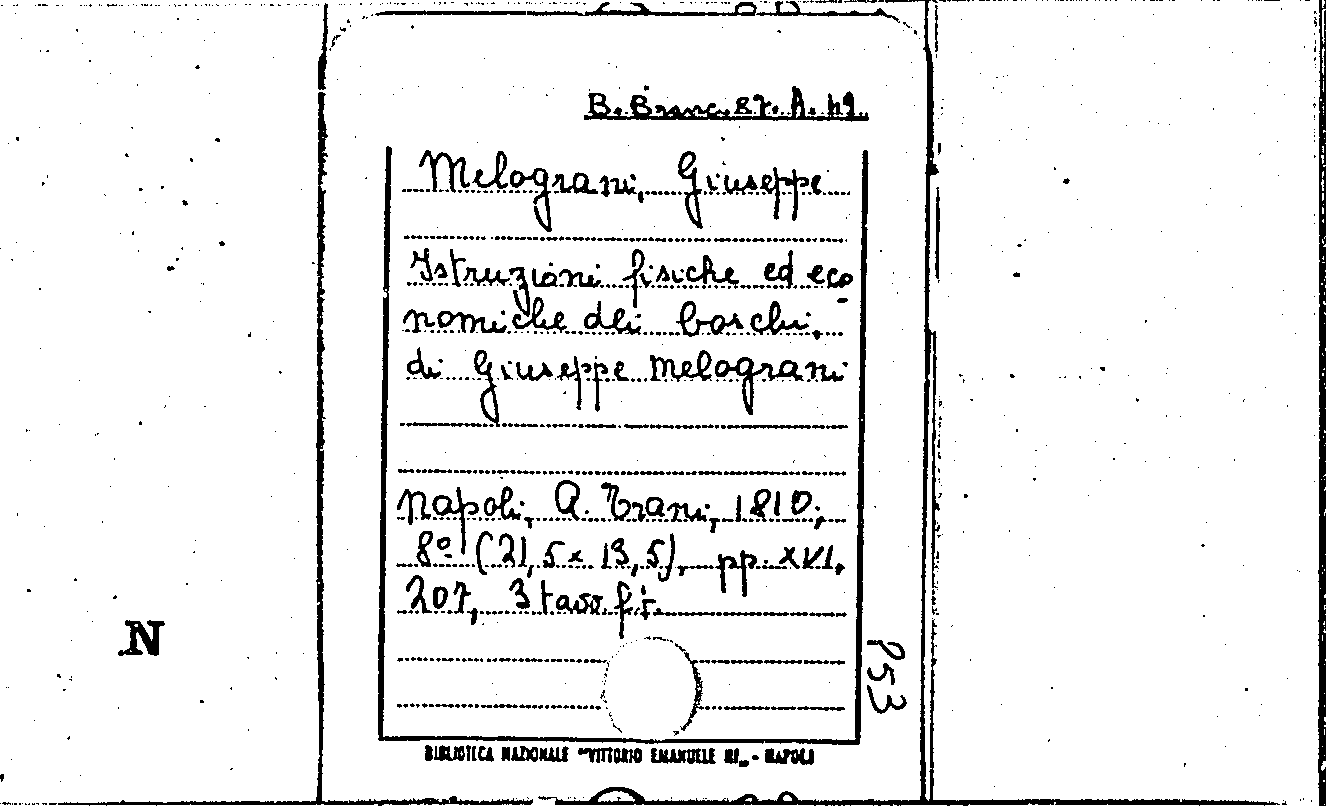 B. Branc. 87. A. 49.
Melograni, Giuseppe
Istruzioni fisiche ed eco
nomiche dei boschi,
di Giuseppe Melograni
Napoli, A. Trani, 1810;
8º (21,5 x 13,5), pp. XVI,
207, 3 tavv. f.t.
P53
N
BIBLIOTECA NAZIONALE "VITTORIO EMANUELE III„ - NAPOLI